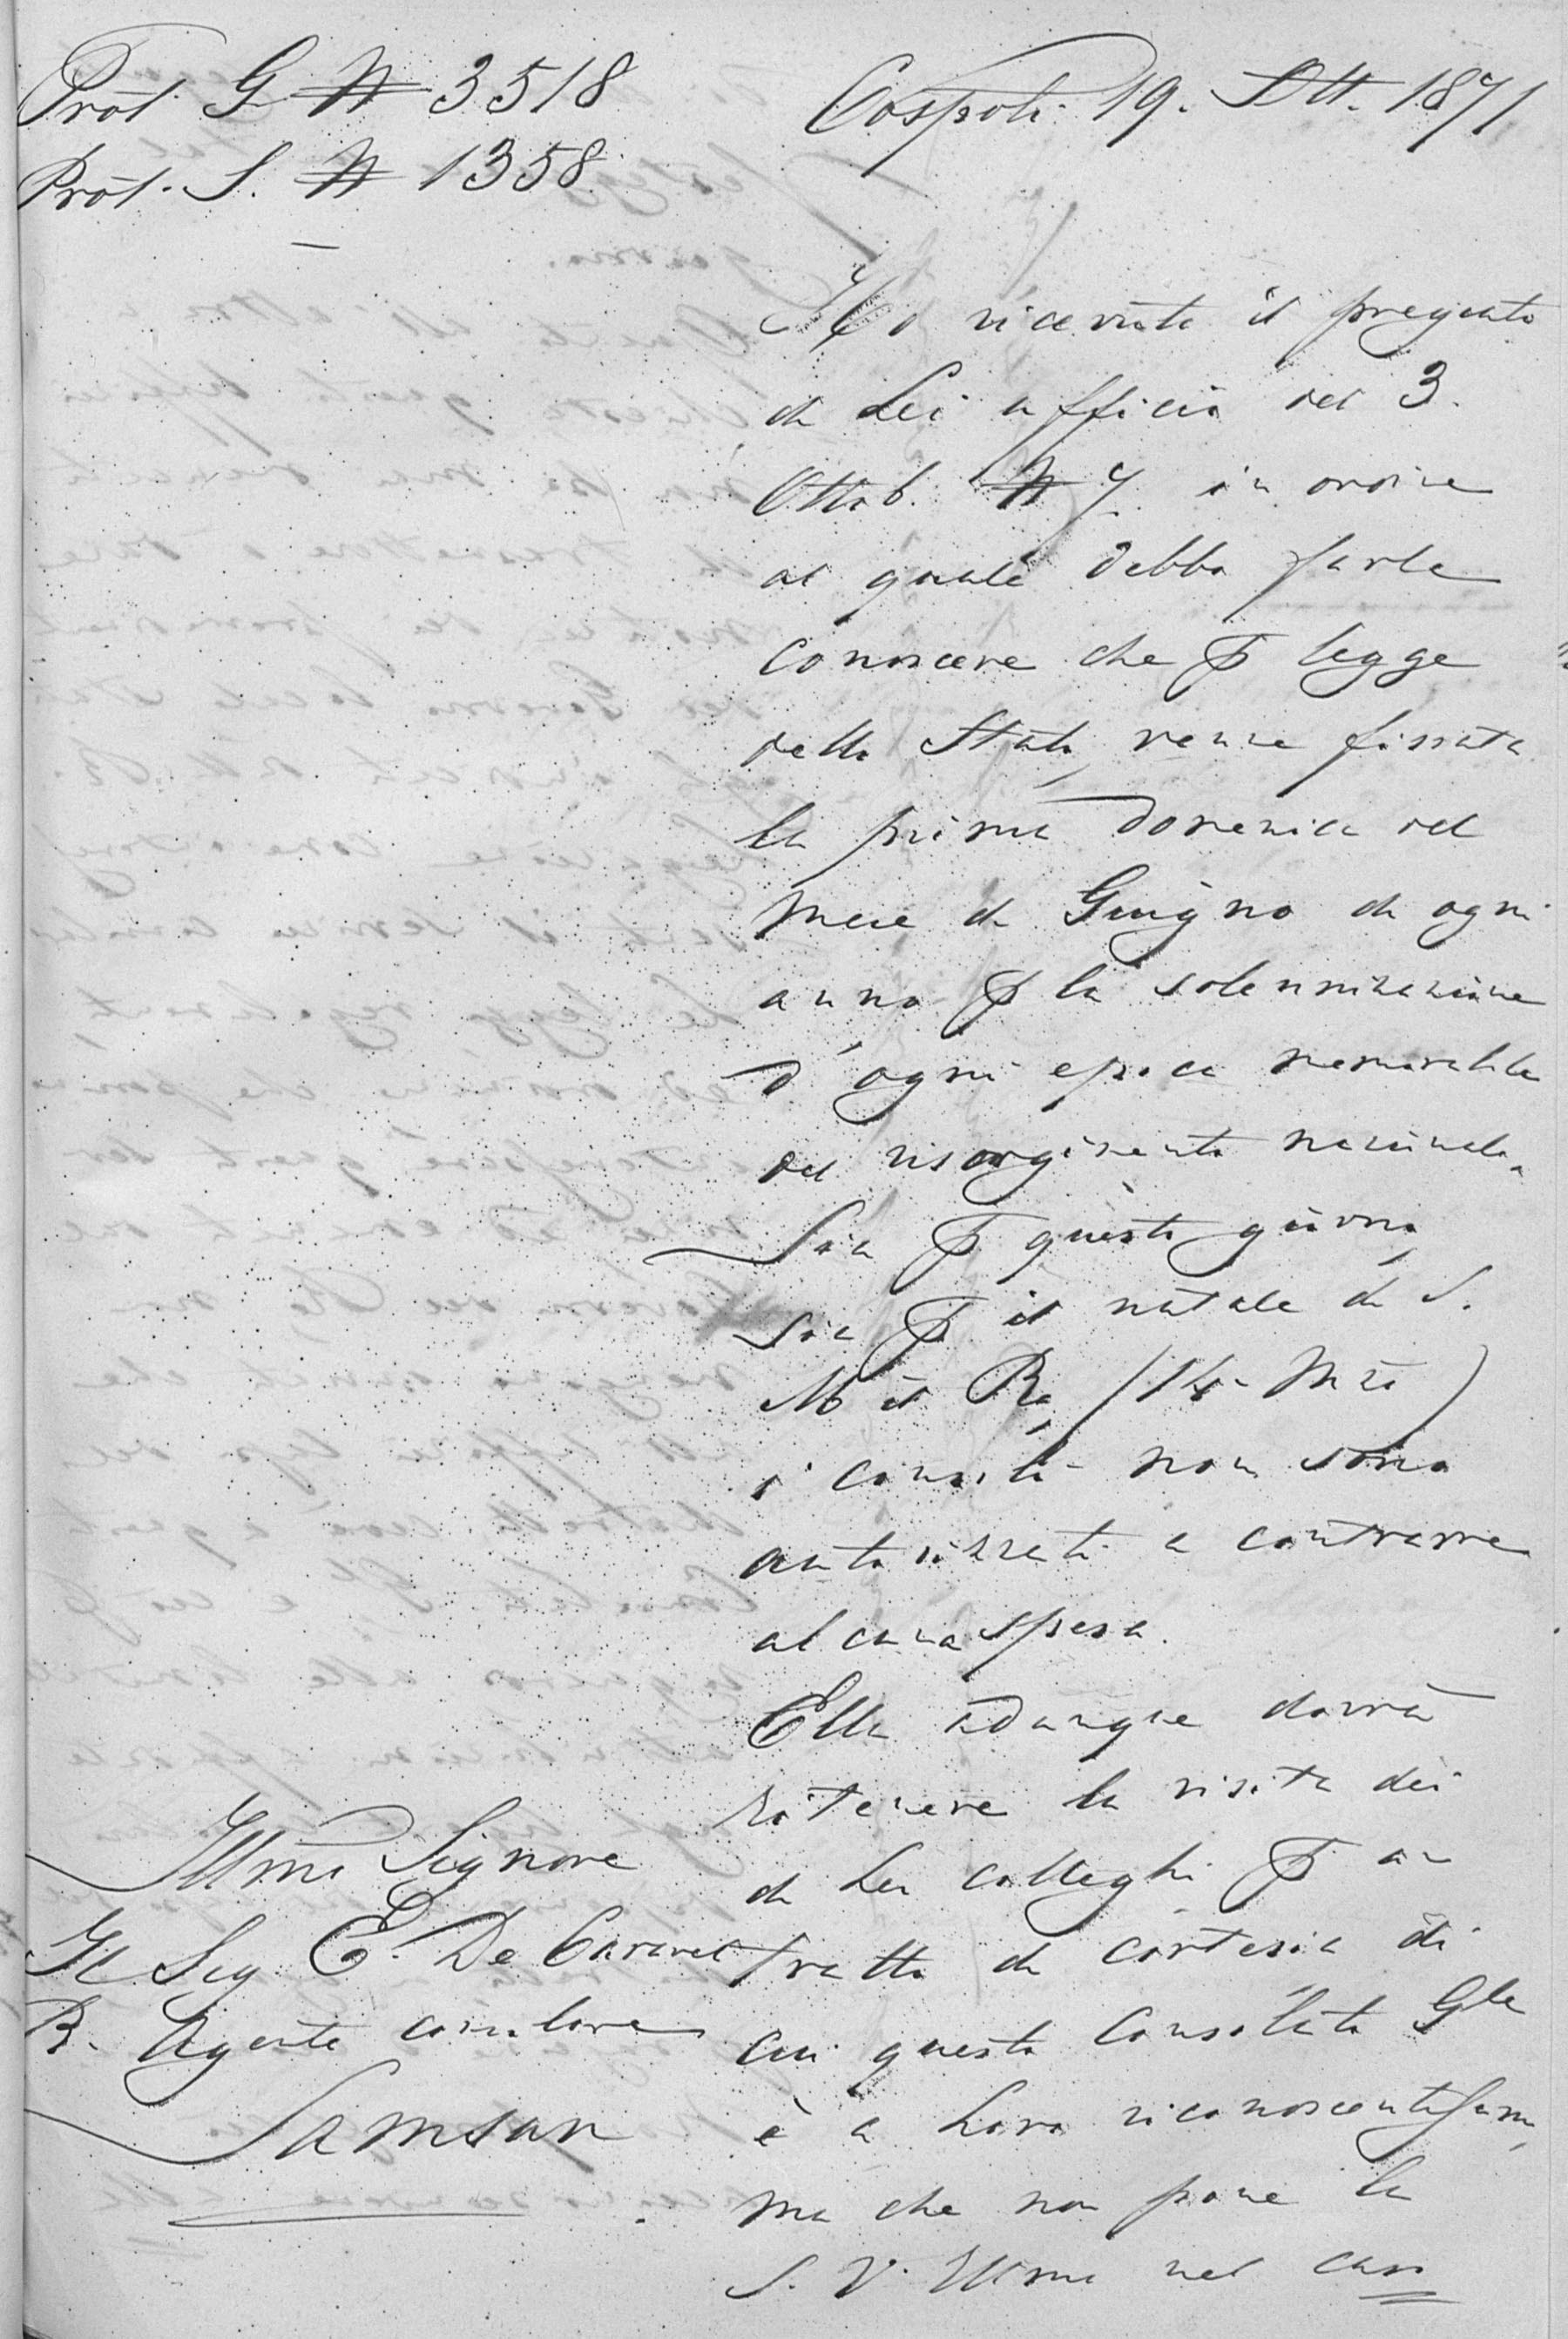 Prot. G. N 3518
Prot. S. N 1358
Cospoli 19. Ott. 1871
Ho ricevuto il pregiato
di Lei ufficio del 3.
Ottob. N 7. in ordine
al quale debbo farle
conoscere che P legge
dello Stato, venne fissata
la prima Domenica del
mese di Giugno di ogni
anno P la solennizzazione
d'ogni epoca memorabile
del risorgimento nazionale.
Sia P questo giorno,
sia P il natale di S.
M il Re, (14 Mzo)
i consoli non sono
autorizzati a contrarre
alcuna spesa.
Ella adunque dovrà
ritenere la visita dei
di Lei colleghi P un
tratto di cortesia di
cui questo Consolato Gle
è a Loro riconoscentissimo,
ma che non pone la
S. V. Illma nel caso
Illmo Signore
Il Sig E. De Caravel
R. Agente consolare
Samsun